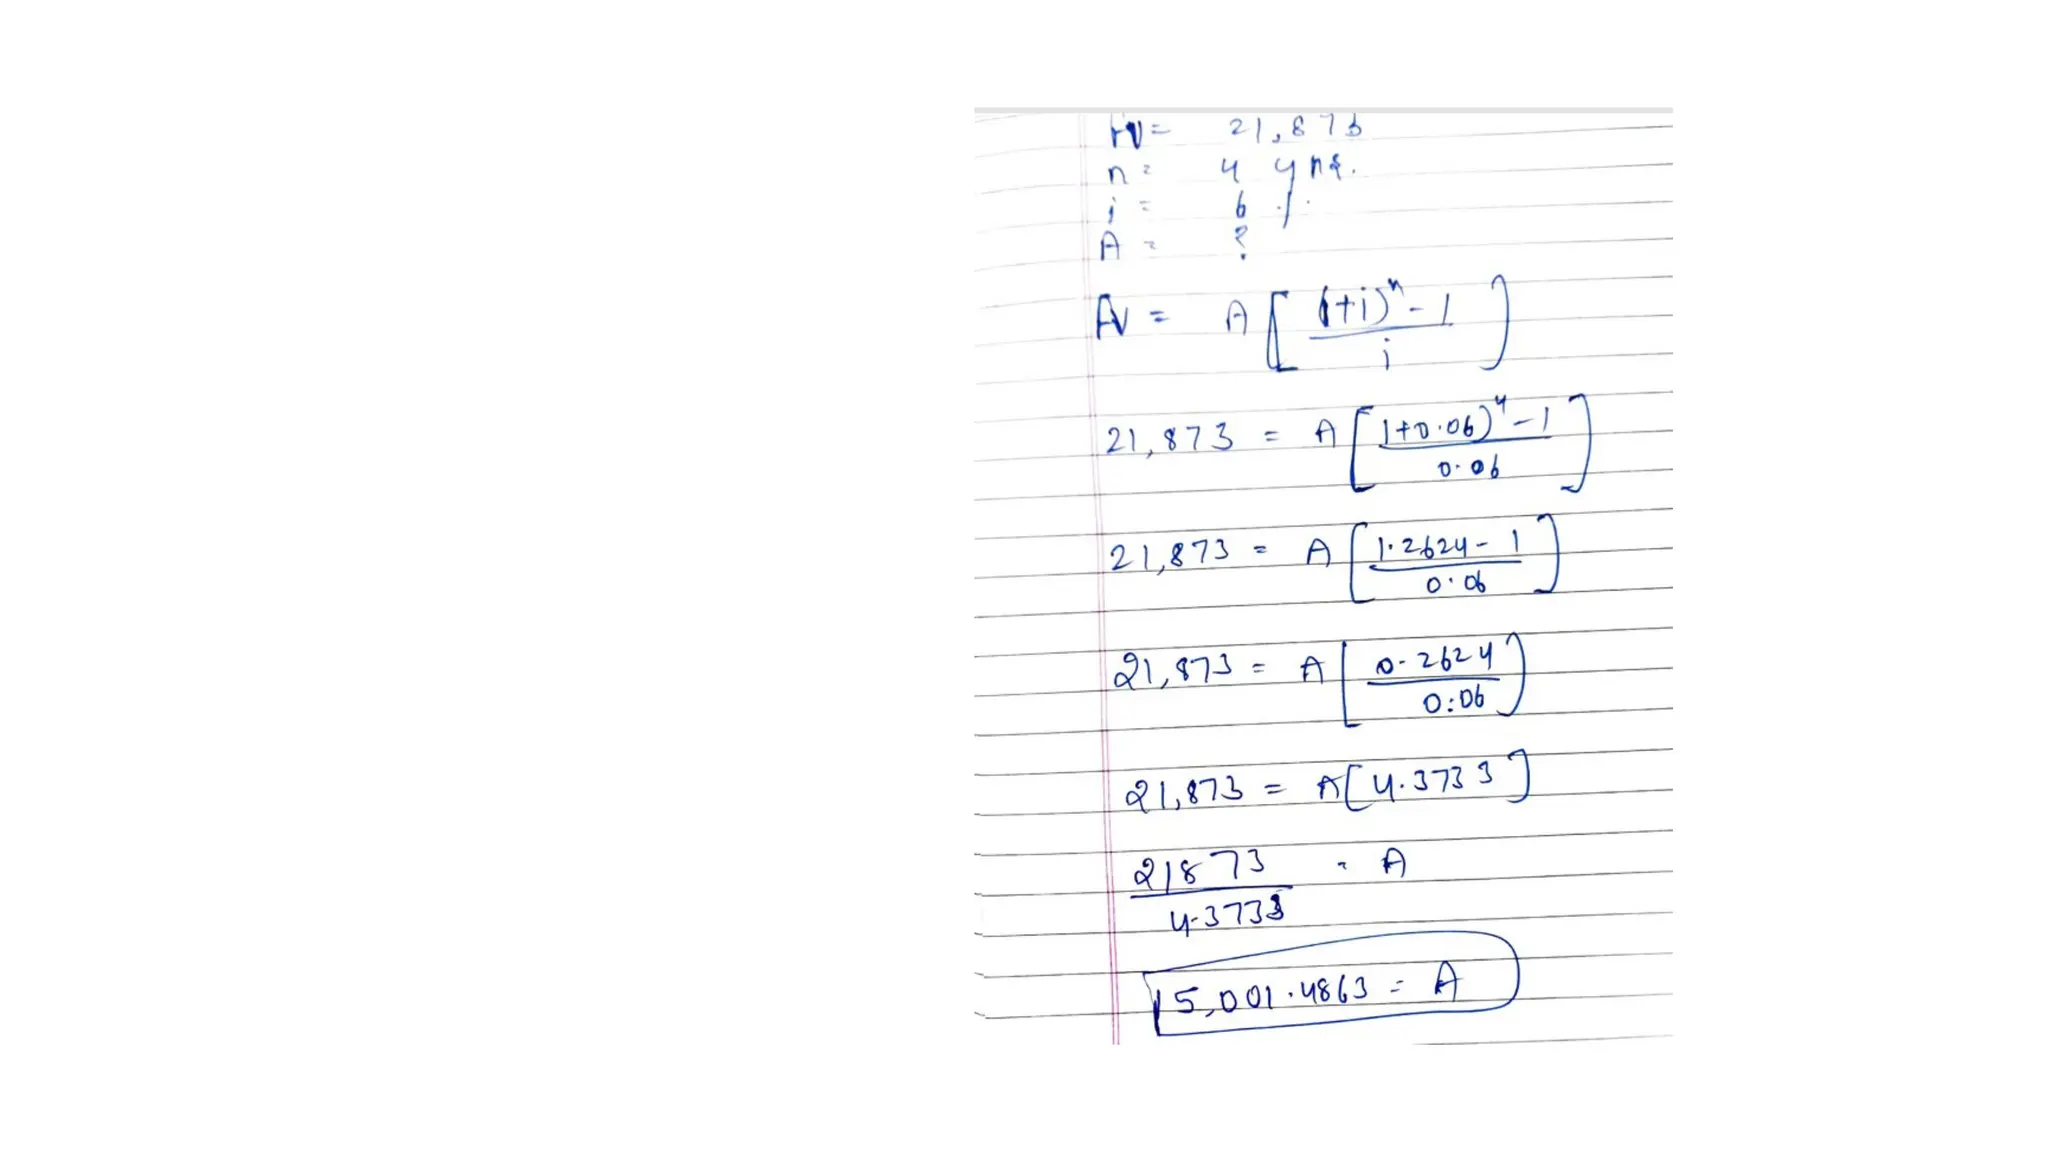 FV = 21,873
n = 4 yrs.
i = 6 %
A = ?
FV = A [ (1+i)^n - 1 / i ]
21,873 = A [ 1+0.06)^4 - 1 / 0.06 ]
21,873 = A [ 1.2624 - 1 / 0.06 ]
21,873 = A [ 0.2624 / 0.06 ]
21,873 = A [ 4.3733 ]
21873 / 4.3733 = A
5,001.4863 = A